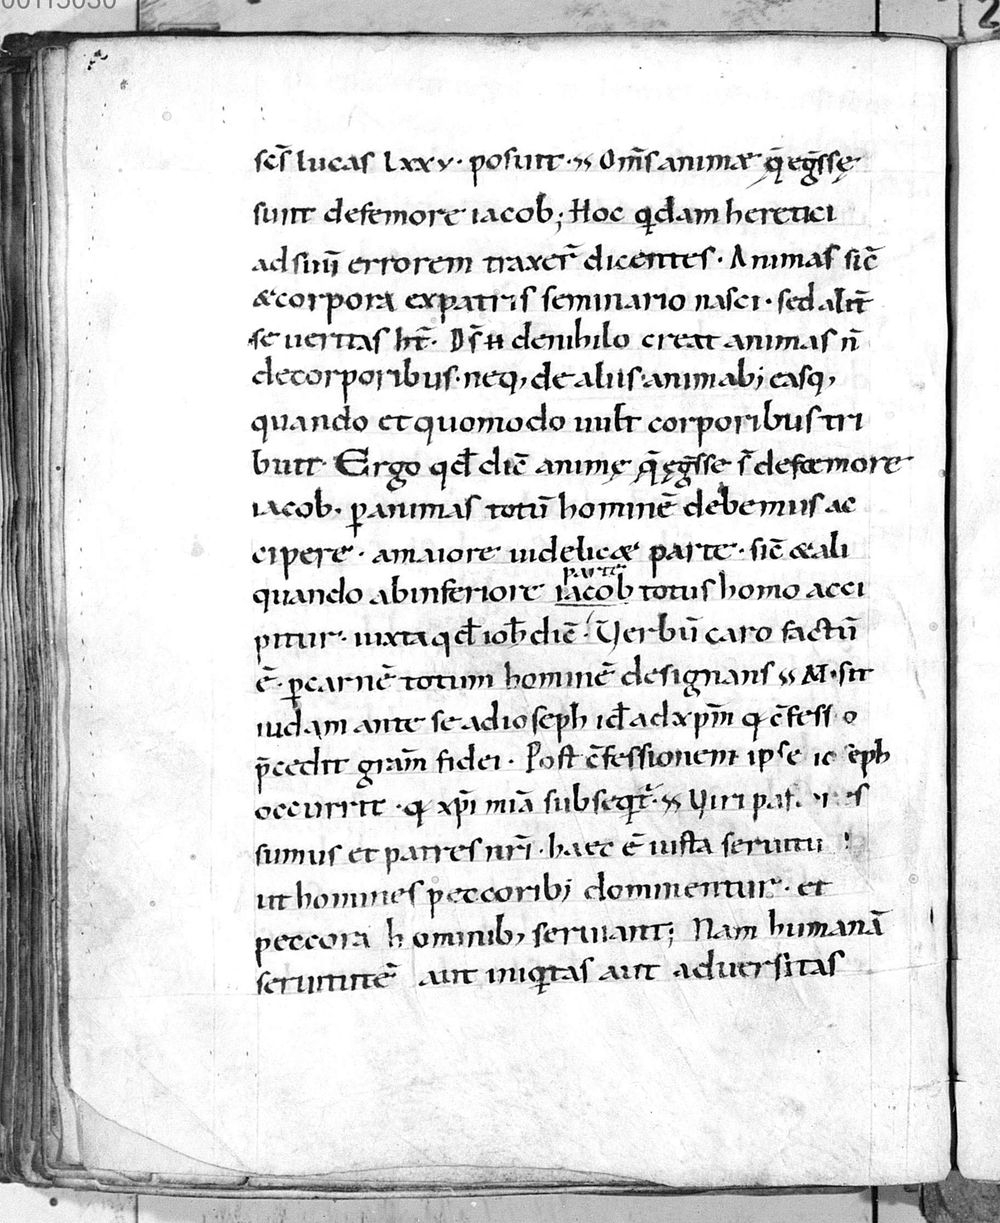 00115030
2
scs̄ lucas Lxxv · posuit · Om̄s animæ q̄ egs̄sę
sunt defemore iacob; Hoc qdam heretici
ad suū errorem traxer̄ dicentes · Animas sic̄
&corpora expatris seminario nasci · sed alit̄
se ueritas ht̄ · Ds̄ denihilo creat animas n̄
decorporibus · neq, de aliis animab; easq,
quando et quomodo uult corporibus tri
buit · Ergo qd̄ dic̄ animę q̄ ęgs̄se s̄ defemore
iacob · p animas totū hominē debemus ac
cipere · amaiore uidelic& parte · sic̄ & ali
parte
quando abinferiore iacob totus homo acci
pitur · iuxta qd̄ ioh̄ dic̄ · Verbū caro factū
ē · p carnē totum hominē designans M · sit
iudam ante se adioseph id̄ ad xpm̄ q c̄fessio
p̄cedit gram̄ fidei · Post c̄fessionem ipse ioseph
occurrit · q xpi miā subseqt̄ · Viri pastores
sumus et patres nri̅ · haec ē iusta seruitu
ut homines peccorib; dominentur · et
peccora hominib, seruiant; Nam humanā
seruitutē aut iniqtas aut aduersitas